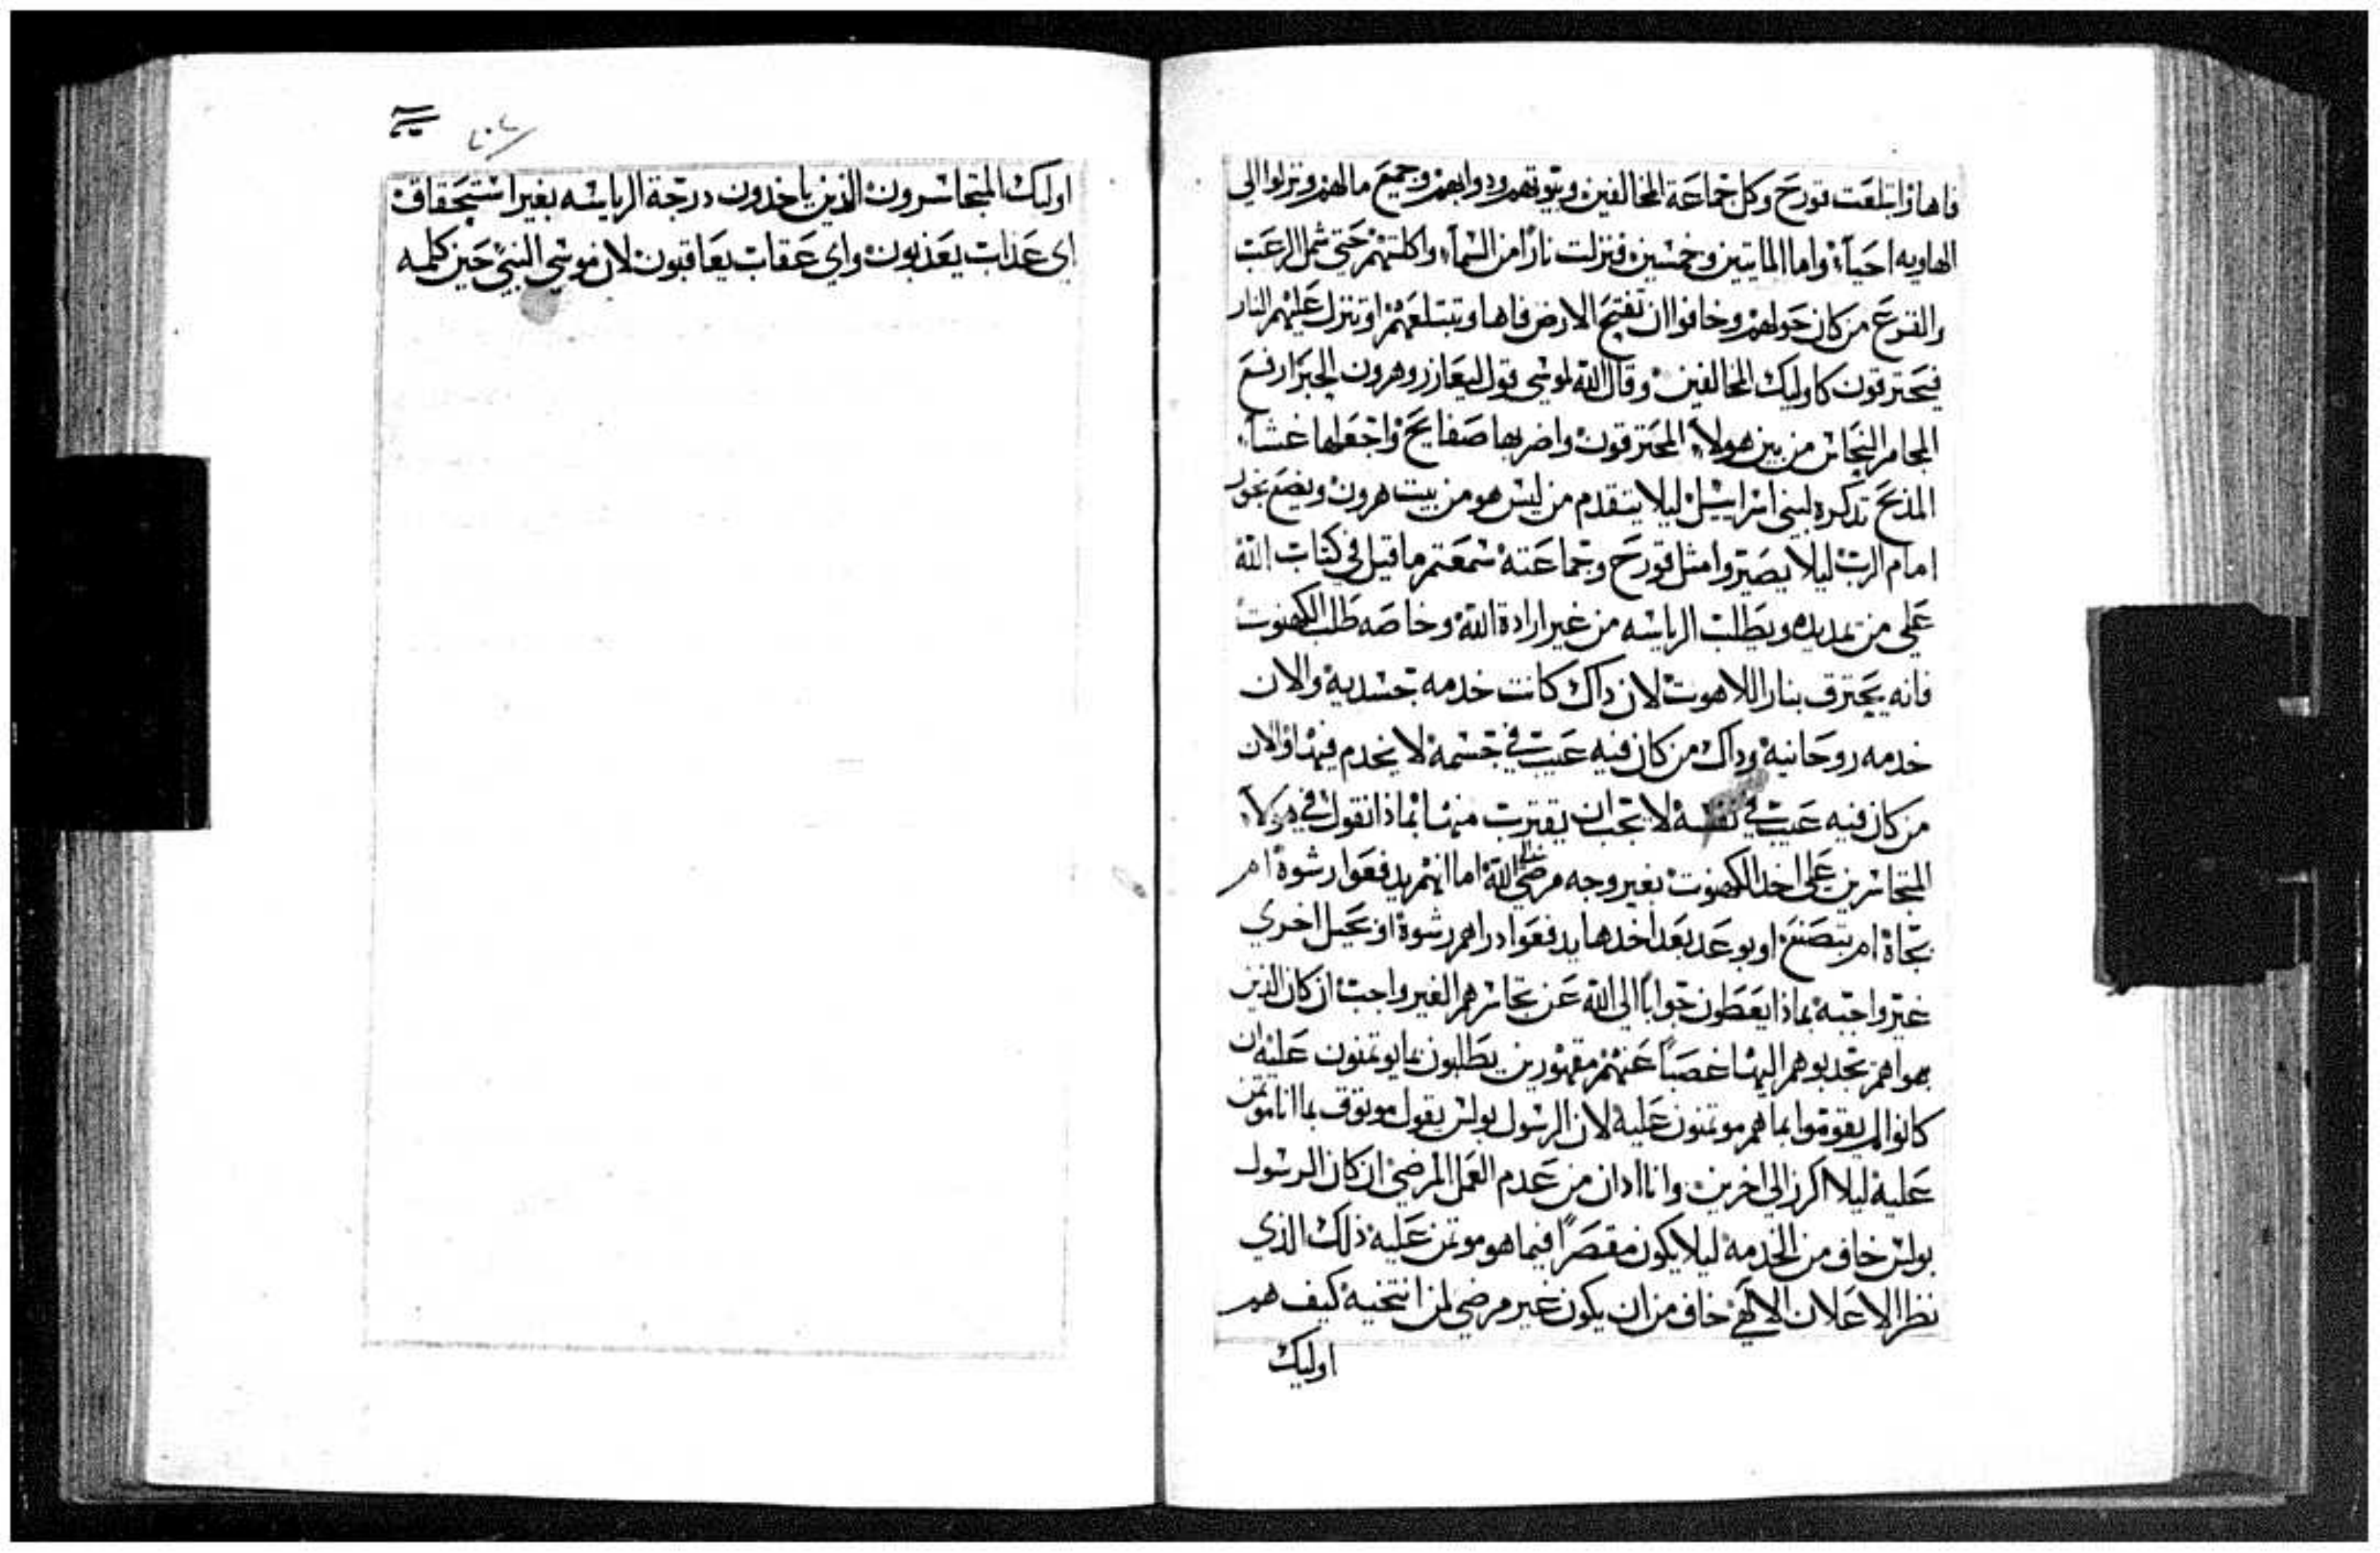 فاها وابتلعت قورح وكل جماعة المخالفين وبيوتهم ودوابهم وجميع مالهم ونزلوا الى
الهاويه احياء واما المايتين وخمسين فنزلت نارا من السماء واكلتهم حتى شمل الرعب
والفزع من كان حولهم وخافوا ان تفتح الارض فاها وتبتلعهم او تنزل عليهم النار
فيحترقون كاوليك المخالفين وقال الله لموسى قول ليعازر وهرون الحبر ارفع
المجامر النحاس من بين هولاء المحترقون واضربها صفايح واجعلها غشاء
المذبح تذكره لبني اسراييل ليلا يتقدم من ليس هو من بيت هرون ويضع بخور
امام الرب ليلا يصيروا مثل قورح وجماعته سمعتم ما قيل في كتاب الله
على من يمد يده ويطلب الرياسه من غير ارادة الله وخاصه طلب الكهنوت
فانه يحترق بنار اللاهوت لان داك كانت خدمه جسديه والان
خدمه روحانيه وداك من كان فيه عيب في جسمه لا يخدم فيها والان
من كان فيه عيب في نفسه لا يجب ان يقترب منها بماذا نقول في هولاء
المتجاسرين على اخد الكهنوت بغير وجه مرضي الله اما انهم يدفعوا رشوة ام
بجاة ام بتصنع او بوعد بعد اخدها يدفعوا دراهم رشوة او بحيل اخري
غير واجبه بماذا يعطون جوابا الى الله عن تجاسرهم الغير واجب ان كان الذين
هواهم تجدبوهم اليها غصبا عنهم مقهورين يطلبون بما يوتمنون عليه ان
كانوا لم يقوموا بما هم موتمنون عليه لان الرسول بولس يقول موثوق بما انا موتمن
عليه ليلا اكرز الى اخرين وانا ادان من عدم العمل المرضي ان كان الرسول
بولس خاف من الخدمه ليلا يكون مقصرا فيما هو موتمن عليه ذلك الذي
نظر الاعلان الالهي خاف من ان يكون غير مرضي لمن انتخبه كيف هم
اوليك
اوليك المتجاسرون الذين ياخدون درجة الرياسه بغير استحقاق
اي عذاب يعذبون واي عقاب يعاقبون لان موسى النبي حين كلمه